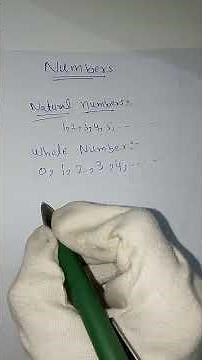 Numbers
Natural numbers:-
1,2,3,4,5,---
Whole Number:-
0,1,2,3,4,--- -